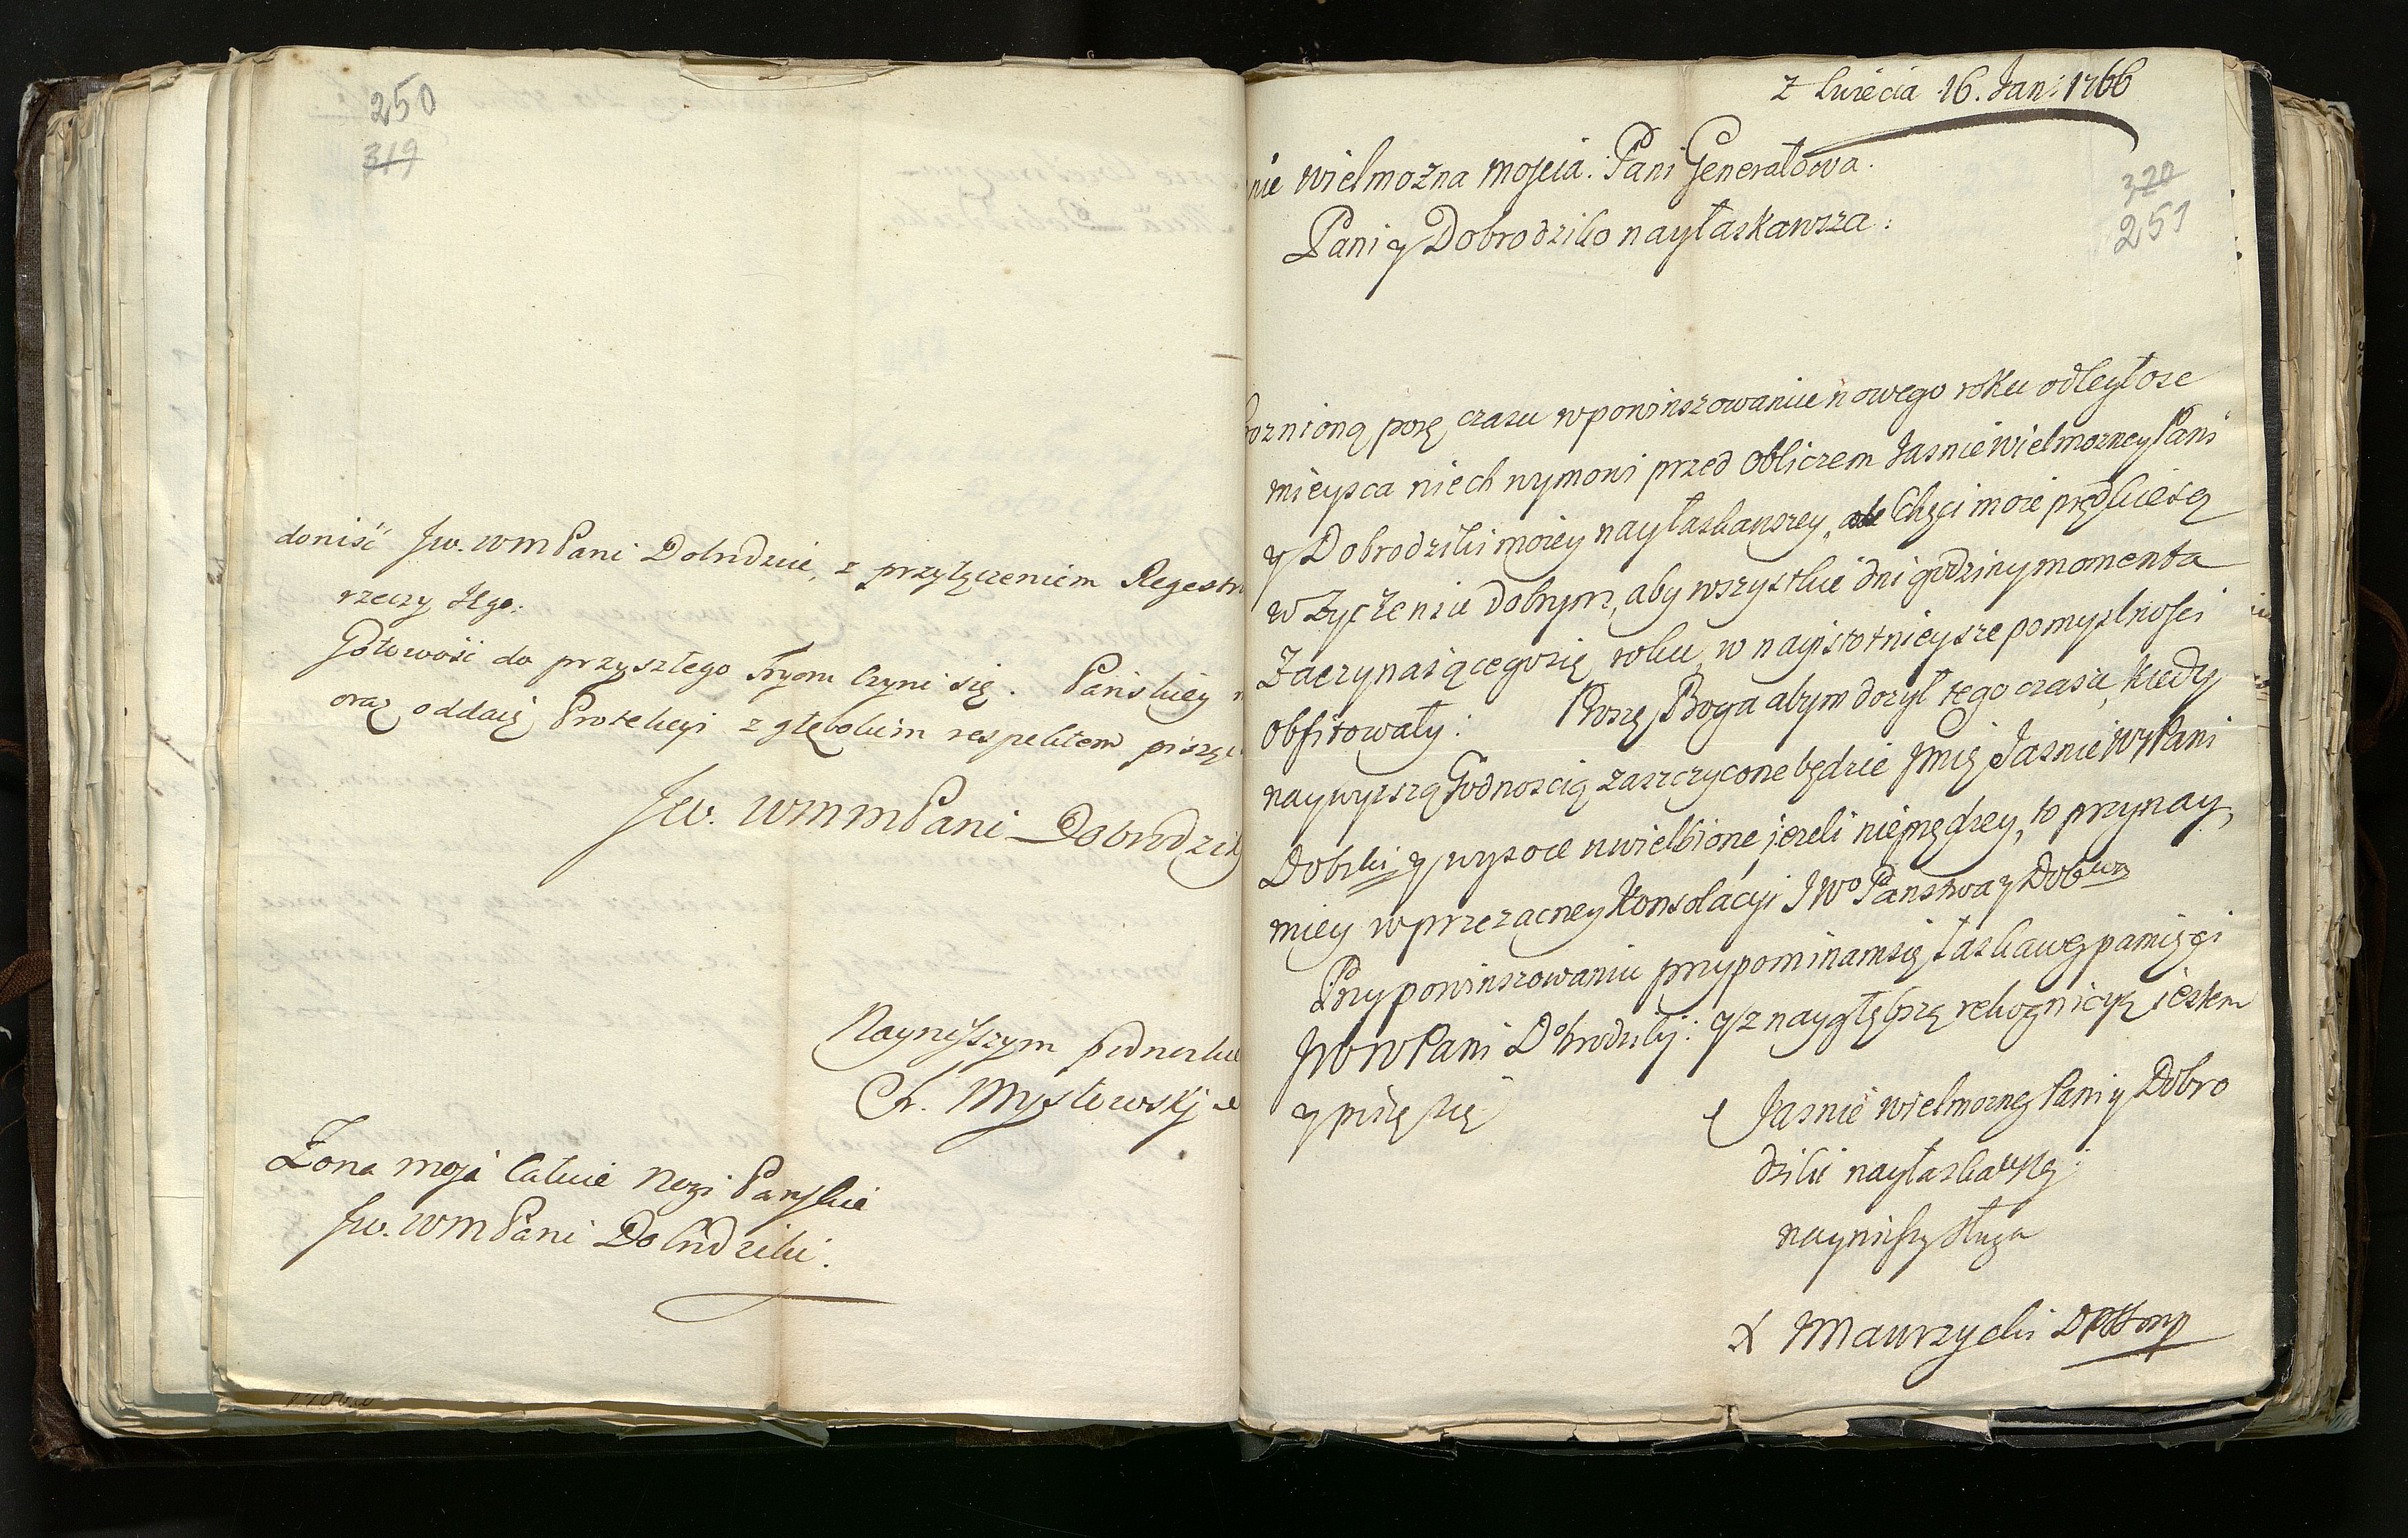 250
319
donisć Jw. WMPani Dobrdzce, z przyłączeniem Regestr
rzeczy Jego:
Gotowość do przyszłego Tryom Czyni się. Pańskiey
oraz oddaię Protekcyi z głębokim respektem piszę
Jw. WMMPani Dobrodzik
Nayniższym podnużk
Ch. Mysłowskj
Żona moja Całuie Nogi Pańskie
Jw. WMPani Dobrdziki.
z 16. Jan: 1766
nie Wielmożna Mojcia. Pani Generałowa.
Pani y Dobrodziko nayłaskawsza:
320
251
oznioną porę czasu w powinszowaniu nowego roku odległosc
mieysca niech wymowi przed obliczem Jasnie Wielmozney Pani
y Dobrodziki moiey nayłaskawszey, Chęci moie prędkie są
w Zyczeniu dobrym, aby wszystkie dni godziny momenta
Zaczynaiącego się roku, w nayistotnieysze pomyslnosci
obfitowały: Proszę Boga abym dozył tego czasu, kiedy
naywyzszą Godnoscią zaszczycone będzie Jmię Jasnie WyPani
Dobzki y wysoce uwielbione jezeli nie prędzey, to przynay,
miey w przezacney Konsolacyi JWo Panstwa y Dob
Przy powinszowaniu przypominam się łaskawey pamięci
JWWPani Dobrodziky: y z naygłębszą rekognicyą iestem
y piszę się Jasnie wielmozney Pani y Dobro
dziki nayłaskawszey:
nayniższy sługa
X Maurzycki